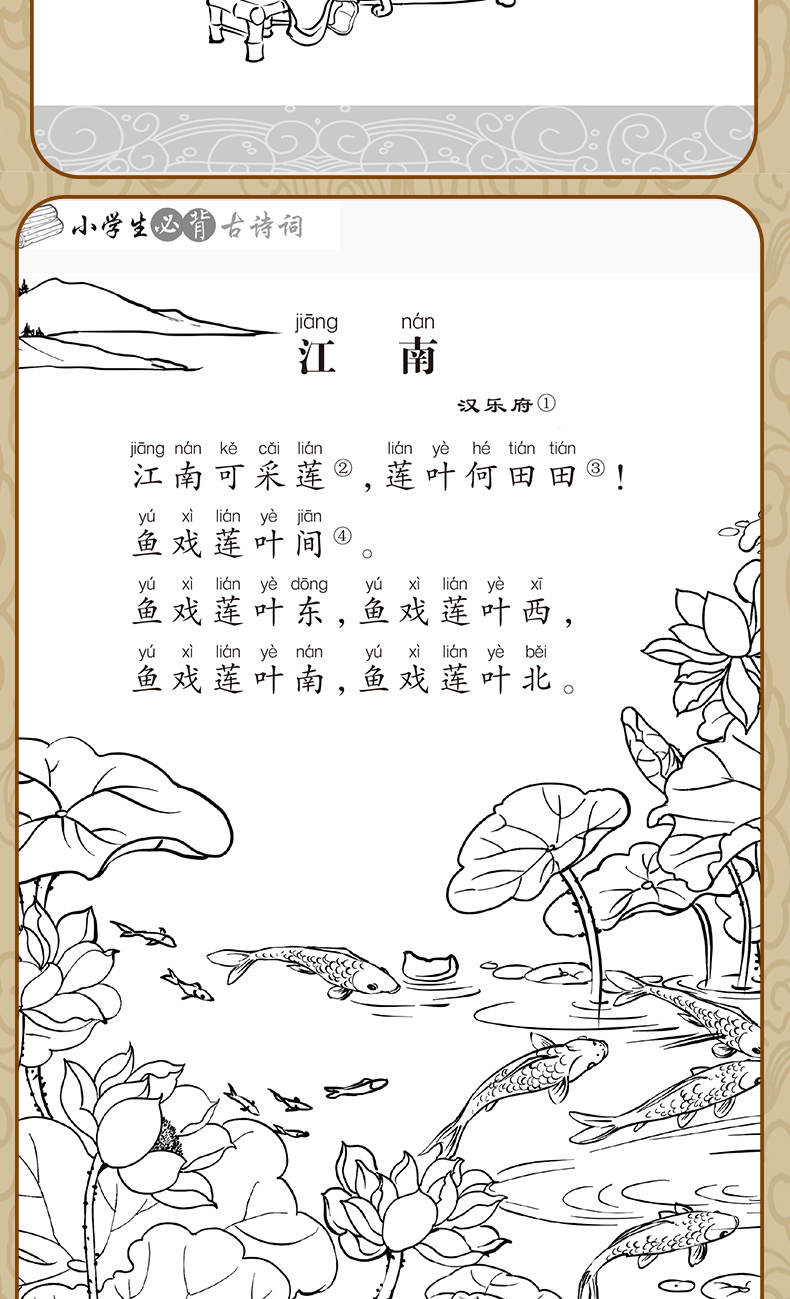 小学生必背古诗词
jiāng nán
江 南
汉乐府①
jiāng nán kě cǎi lián lián yè hé tián tián
江南可采莲②，莲叶何田田③！
yú xì lián yè jiān
鱼戏莲叶间④。
yú xì lián yè dōng yú xì lián yè xī
鱼戏莲叶东，鱼戏莲叶西，
yú xì lián yè nán yú xì lián yè běi
鱼戏莲叶南，鱼戏莲叶北。